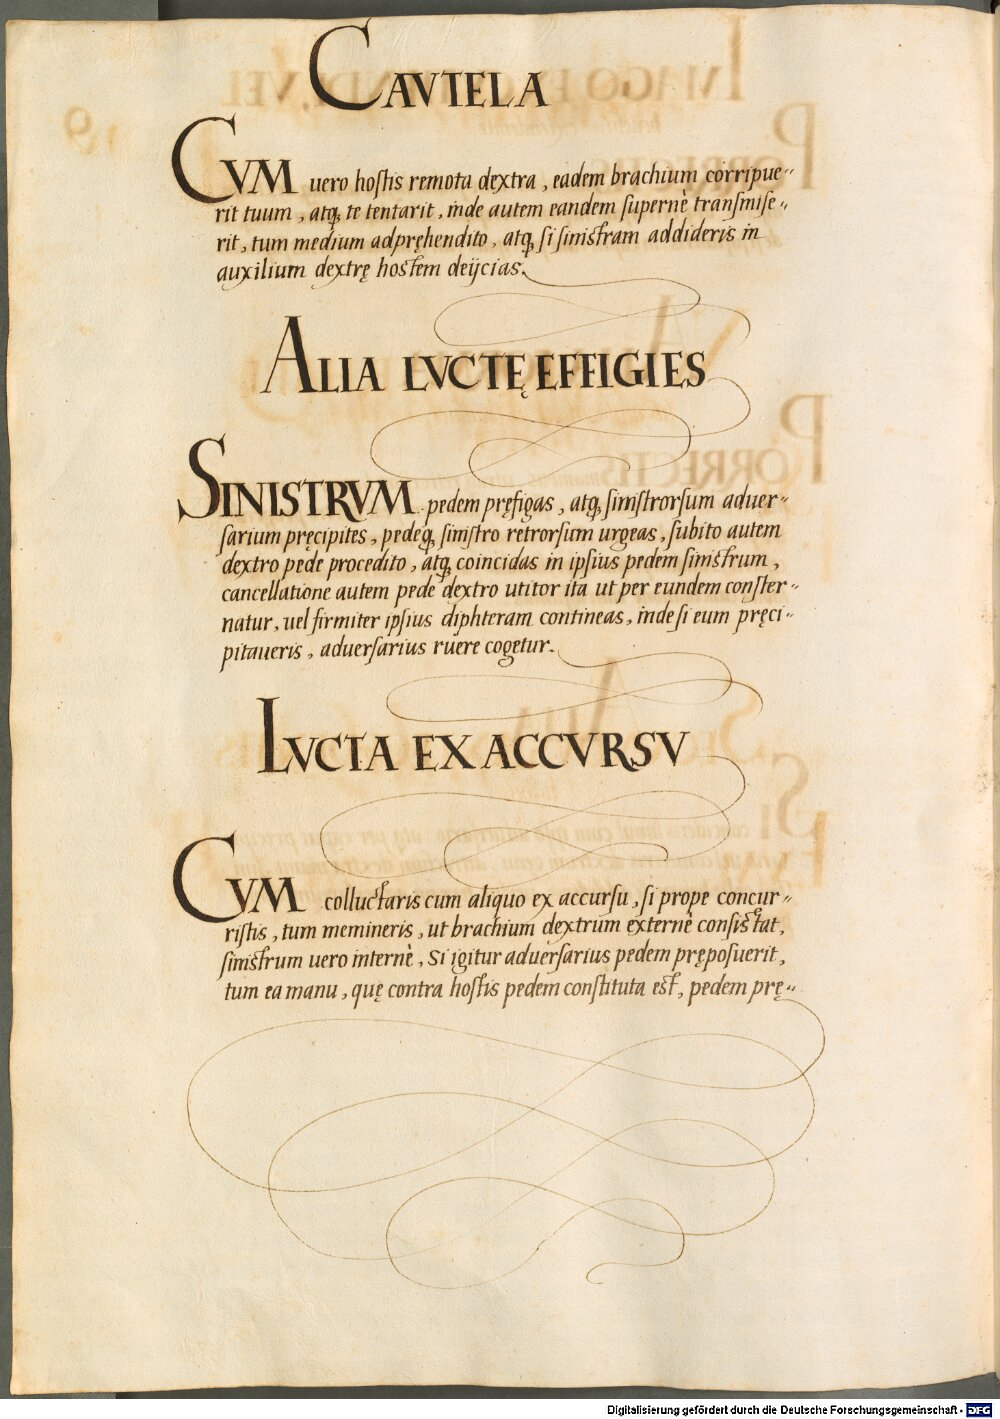 CAVTELA
CVM uero hostis remota dextra, eadem brachium corripue-
rit tuum, atq; te tentarit, inde autem eandem supernè transmise-
rit, tum medium adpręhendito, atq; si sinistram addideris in
auxilium dextrę hostem deijcias.
ALIA LVCTĘ EFFIGIES
SINISTRVM pedem pręfigas, atq; sinistrorsum aduer-
sarium pręcipites, pedeq; sinistro retrorsum urgeas, subito autem
dextro pede procedito, atq; coincidas in ipsius pedem sinistrum,
cancellatione autem pede dextro utitor ita ut per eundem conster-
natur, uel firmiter ipsius diphteram contineas, inde si eum pręci-
pitaueris, aduersarius ruere cogetur.
LVCTA EX ACCVRSV
CVM colluctaris cum aliquo ex accursu, si prope concur-
ristis, tum memineris, ut brachium dextrum externè consistat,
sinistrum uero internè, Si igitur aduersarius pedem pręposuerit,
tum ea manu, quę contra hostis pedem constituta est, pedem prę-
Digitalisierung gefördert durch die Deutsche Forschungsgemeinschaft - DFG